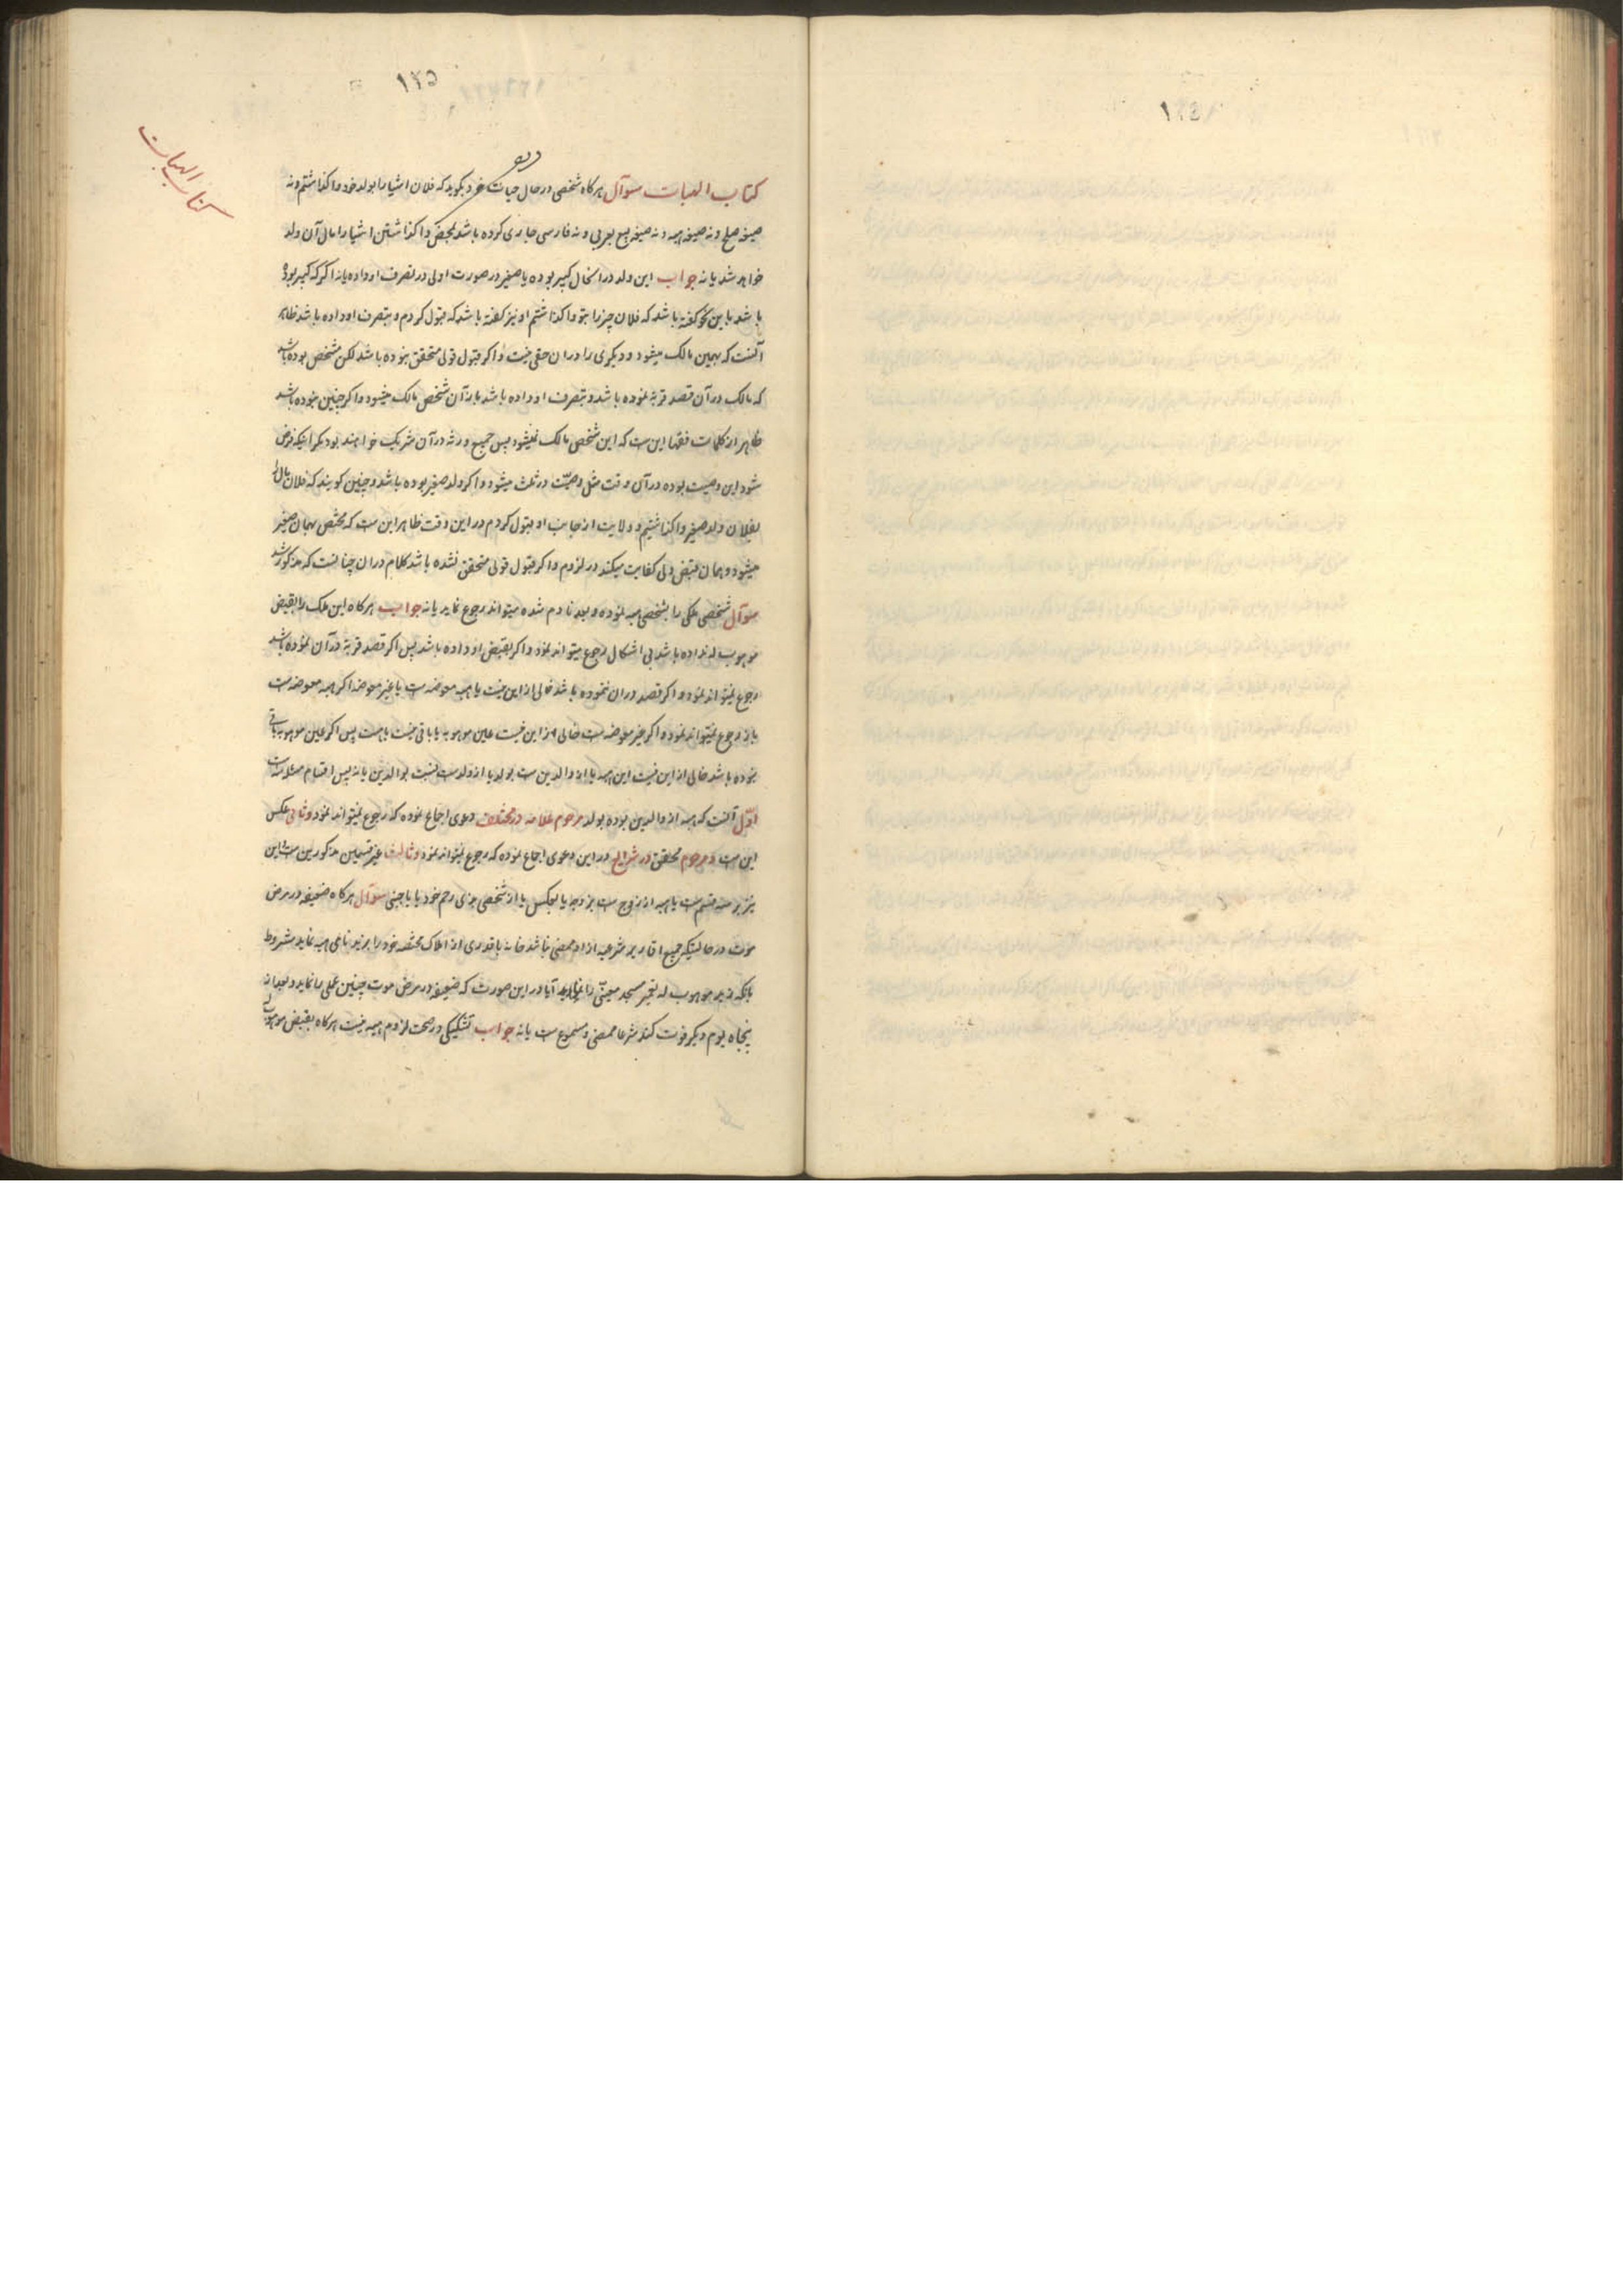 ١٢٥
كتاب الهبات
كتاب الهبات سوآل هركاه شخصى در حال حيات خود بكويد كه فلان اشيا را بولد خود واكذاشتم و نه
صيغه صلح و نه صيغه هبه و نه صيغه بيع بعربى و نه فارسى جارى كرده باشد بمحض واكذاشتن اشيا را مال آن ولد
خواهد شد يا نه جواب اين ولد در انحال كبير بوده يا صغير در صورت اولى در تصرف او داده يا نه اكر كه كبير بوده
باشد باين نحو كفته باشد كه فلان چيز را بتو واكذاشتم او نيز كفته باشد كه قبول كردم و بتصرف او داده باشد ظاهر
آنست كه بهمين مالك ميشود و ديكرى را در ان حقى نيست و اكر قبول قولى متحقق نبوده باشد لكن مشخص بوده باشد
كه مالك در آن قصد قربة نموده باشد و بتصرف او داده باشد باز آن شخص مالك ميشود و اكر چنين نبوده باشد
ظاهر از كلمات فقها اين ست كه اين شخص مالك نميشود پس جميع ورثه در آن شريك خواهند بود مكر اينكه فرض
شود اين وصيت بوده در آن وقت مثل وصيّت در ثلث ميشود و اكر ولد صغير بوده باشد و چنين كويند كه فلان مال را
بفلان ولد صغير واكذاشتيم و ولايت از جانب او قبول كردم در اين وقت ظاهر اين ست كه مختص بهمان صغير
ميشود و همان قبض ولى كفايت ميكند در لزوم و اكر قبول قولى متحقق نشده باشد كلام در ان چنانست كه مذكور شد
سوآل شخصى ملكى را بشخصى هبه نموده و بعد نادم شده ميتواند رجوع نمايد يا نه جواب هركاه اين ملك را بقبض
موهوب له نداده باشد بى اشكال رجوع ميتواند نمود و اكر بقبض او داده باشد پس اكر قصد قربة در آن نموده باشد
رجوع نميتواند نمود و اكر قصد در ان ننموده باشد خالى از اين نيست يا هبه معوضه ست يا غير معوضه اكر هبه معوضه ست
باز رجوع نميتواند نمود و اكر غير معوضه ست خالى از اين نيست عين موهوبه يا باقى نيست يا هست پس اكر عين موهوبه باقى
بوده باشد خالى از اين نيست اين هبه يا از والدين ست بولد يا از ولد ست نسبت بوالدين يا نه پس اقسام مسئله ست
اوّل آنست كه هبه از والدين بوده بولد مرحوم علامه در مختلف دعوى اجماع نموده كه رجوع نميتواند نمود و ثانى عكس
اين ست و مرحوم محقق در شرايع در اين دعوى اجماع نموده كه رجوع نميتواند نمود و ثالث غير قسمين مذكورين ست اين
نيز بر سه قسم ست يا هبه از زوج ست بزوجه يا بعكس يا از شخصى بذى رحم خود يا باجنبى سوآل هركاه ضعيفه در مرض
موت در حالتيكه جميع اقارير شرعيه از او ممضى باشد خانه يا قدرى از املاك مختصه خود را بزيد نامى هبه نمايد مشروط
بانكه زيد موهوب له تعمير مسجد معيّنى را نمايد آيا در اين صورت كه ضعيفه در مرض موت چنين عملى را نمايد و بعد از
پنجاه يوم ديكر فوت كند شرعا ممضى و مسموع ست يا نه جواب تشكيكى در صحت لزوم هبه نيست هركاه بقبض موهوب له